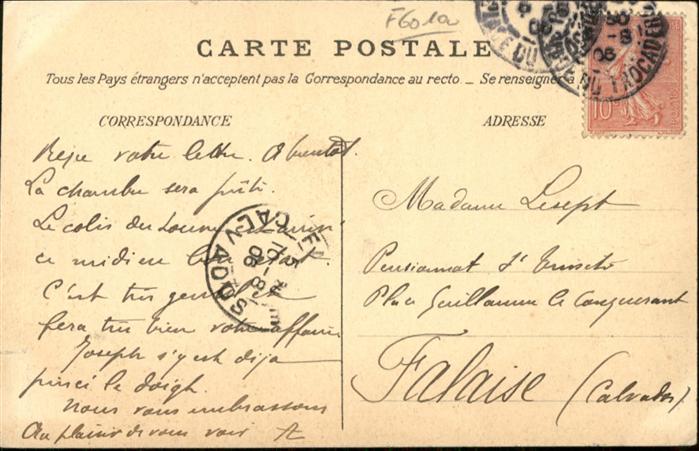 F601a
CARTE POSTALE
Tous les Pays étrangers n'acceptent pas la Correspondance au recto _ Se renseigner à
PLACE DU TROCADERO
8 06
10
CORRESPONDANCE
ADRESSE
Reçu votre lettre. A bientôt.
La chambre sera prête.
Le colis du Louvre
ce midi
C'est très
fera très bien votre affaire
Joseph s'y est déjà
pincé le doigt.
Nous vous embrassons
Au plaisir de vous voir
CALVADOS
8 06
Madame Lesept
Pensionnat
Place Guillaume le Conquérant
Falaise (Calvados)